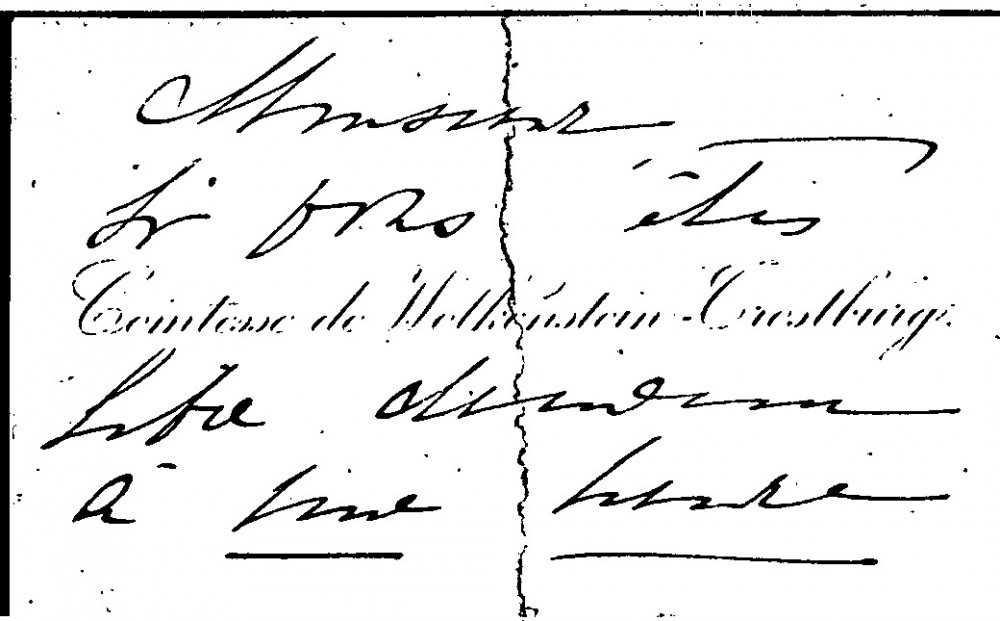 Monsieur
Si vous êtes
Comtesse de Wolkenstein-Trostburg.
libre demain
à une heure